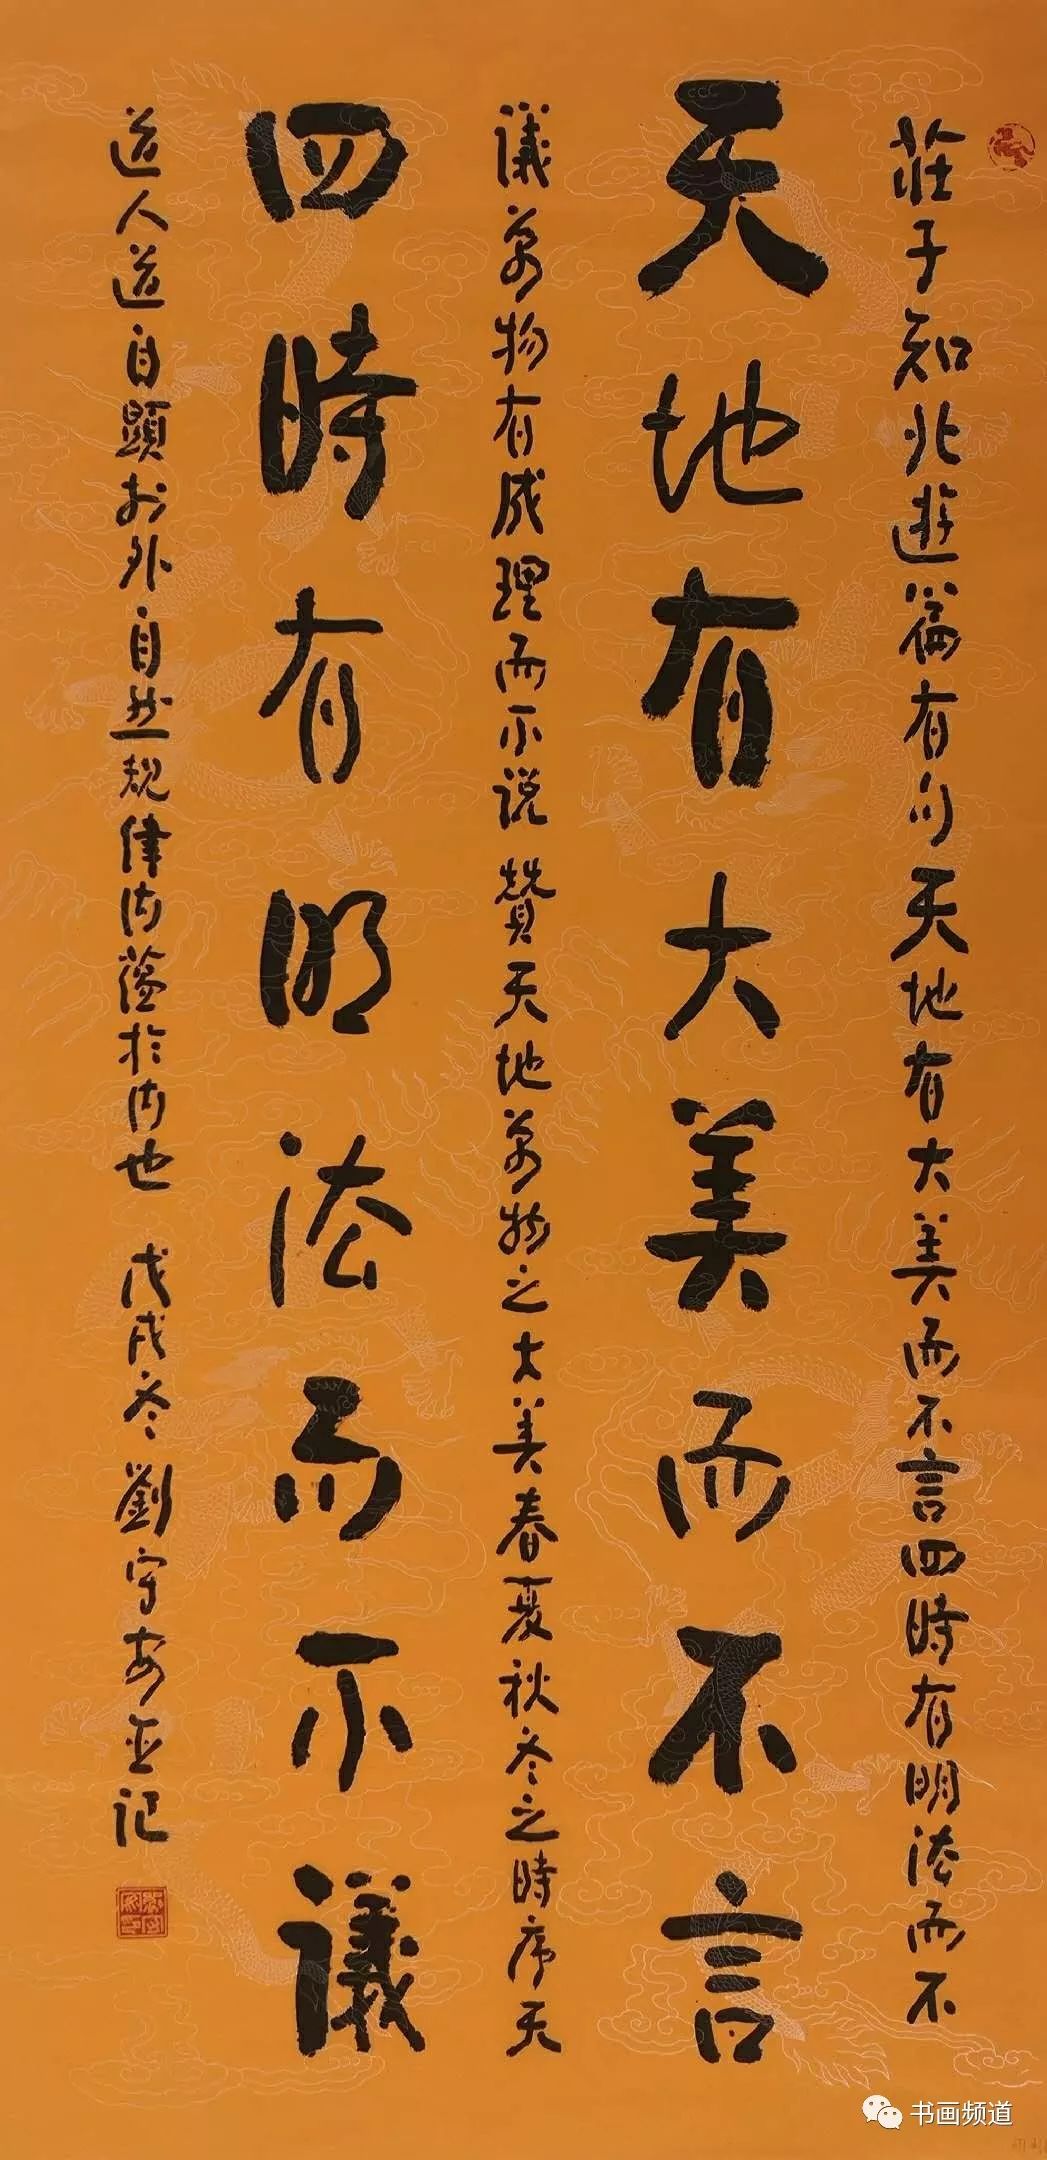 莊子知北遊篇有句天地有大美而不言四時有明法而不
天地有大美而不言
議萬物有成理而不說 贊天地萬物之大美春夏秋冬之時序天
四時有明法而不議
道人道自顯於外自然規律內蘊於內也 戊戌冬 劉守安並記
书画频道